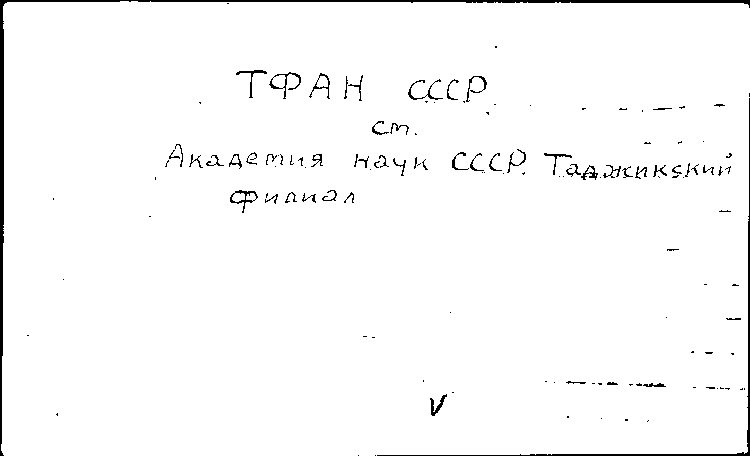 ТФАН СССР
см.
Академия наук СССР. Таджикский
филиал
V